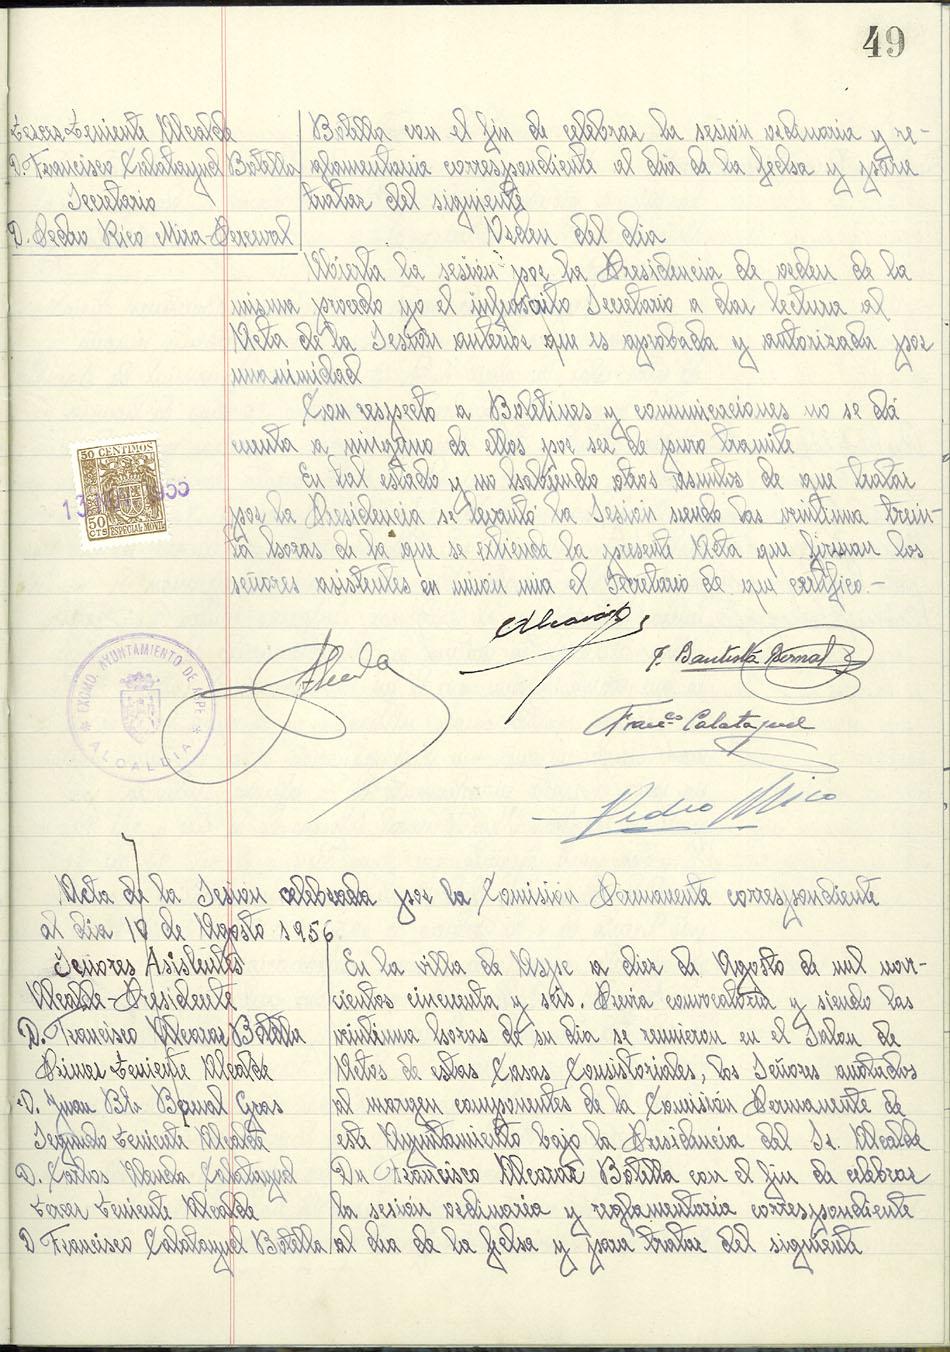 49
Tercer Teniente Alcalde
D. Francisco Calatayud Botella
Secretario
D. Pedro Rico Mira-Perceval
Botella con el fin de celebrar la sesión ordinaria y re-
glamentaria correspondiente al dia de la fecha y para
tratar del siguiente
Orden del dia
Abierta la sesión por la Presidencia de orden de la
misma procedo yo el infrascrito Secretario a dar lectura al
Acta de la Sesión anterior que es aprobada y autorizada por
unanimidad
Con respecto a Boletines y comunicaciones no se dá
cuenta a ninguno de ellos por ser de puro tramite
En tal estado y no habiendo otros asuntos de que tratar
por la Presidencia se levantó la Sesión siendo las veintiuna trein-
ta horas de la que se extiende la presente Acta que firman los
señores asistentes en unión mia el Secretario de que certifico.-
50 CENTIMOS
50 CTS ESPECIAL MOVIL
EXCMO. AYUNTAMIENTO DE ASPE
* ALCALDIA *
J. Bautista Bernal
Franco Calatayud
Pedro Rico
Acta de la Sesión celebrada por la Comisión Permanente correspondiente
al dia 10 de Agosto 1956
Señores Asistentes
Alcalde-Presidente
D. Francisco Alcaraz Botella
Primer Teniente Alcalde
D. Juan Bta Bernal Gras
Segundo Teniente Alcalde
D. Carlos Alenda Calatayud
Tercer Teniente Alcalde
D Francisco Calatayud Botella
En la villa de Aspe a diez de Agosto de mil nove-
cientos cincuenta y seis. Previa convocatoria y siendo las
veintiuna horas de su dia se reunieron en el Salon de
Actos de estas Casas Consistoriales, los Señores anotados
al margen componentes de la Comisión Permanente de
este Ayuntamiento bajo la Presidencia del Sr. Alcalde
Dn Francisco Alcaraz Botella con el fin de celebrar
la sesión ordinaria y reglamentaria correspondiente
al dia de la fecha y para tratar del siguiente